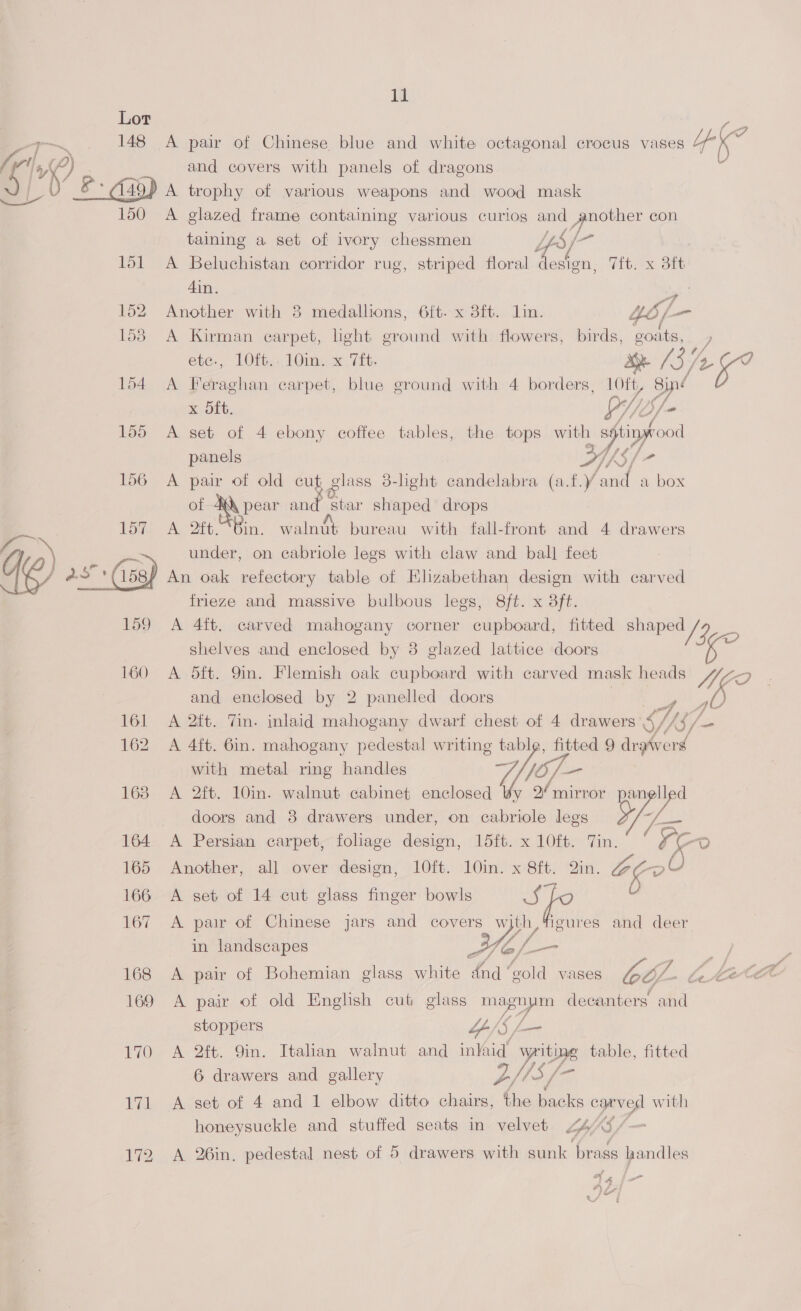 11
Lot
148 A pair of Chinese blue and white octagonal crocus vases
and covers with panels of dragons
149 A trophy of various weapons and wood mask
150 A glazed frame containing various curios and another con
taining a set of ivory chessmen
151 A Beluchistan corridor rug, striped floral design, 7ft. x 3ft
4in.
152 Another with 3 medallions, 6ft. x 3ft. 1in.
153 A Kirman carpet, light ground with flowers, birds, goats,
etc., 10ft. 10in. x 7ft.
154 A Feraghan carpet, blue ground with 4 borders, 10ft, 8in
x 5ft.
155 A set of 4 ebony coffee tables, the tops with satinwood
panels
156 A pair of old cut glass 3-light candelabra (a.f.) and a box
of pear and star shaped drops
157 A 2ft. 6in. walnut bureau with fall-front and 4 drawers
under, on cabriole legs with claw and ball feet
158 An oak refectory table of Elizabethan design with carved
frieze and massive bulbous legs, 8ft. x 3ft.
159 A 4ft. carved mahogany corner cupboard, fitted shaped
shelves and enclosed by 3 glazed lattice doors
160 A 5ft. 9in. Flemish oak cupboard with carved mask heads
and enclosed by 2 panelled doors
161 A 2ft. 7in. inlaid mahogany dwarf chest of 4 drawers
162 A 4ft. 6in. mahogany pedestal writing table, fitted 9 drawers
with metal ring handles
163 A 2ft. 10in. walnut cabinet enclosed by 2 mirror panelled
doors and 3 drawers under, on cabriole legs
164 A Persian carpet, foliage design, 15ft. x 10ft. 7in.
165 Another, all over design, 10ft. 10in. x 8ft. 2in.
166 A set of 14 cut glass finger bowls
167 A pair of Chinese jars and covers with figures and deer
in landscapes
168 A pair of Bohemian glass white and gold vases
169 A pair of old English cut glass magnum decanters and
stoppers
170 A 2ft. 9in. Italian walnut and inlaid writing table, fitted
6 drawers and gallery
171 A set of 4 and 1 elbow ditto chairs, the backs carved with
honeysuckle and stuffed seats in velvet
172 A 26in. pedestal nest of 5 drawers with sunk brass handles